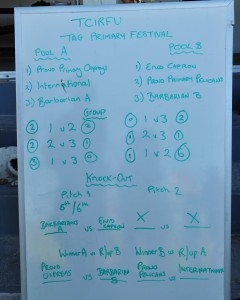 TCIRFU
-TAG PRIMARY FESTIVAL
POOL A
POOL B
1) Provo Primary Ospreys
1) Enid Capron
2) International
2) Provo Primary Pelicans
3) Barbarian A
3) BARBARIAN B
Group
② 1 v 2 ②
1 v 2
② 2 v 3 ①
2 v 3 ①
1 v 3 ①
1 v 2
KNOCK-OUT
Pitch 1
Pitch 2
5th/6th
BARBARIANS A vs ENID CAPRON
X vs X
WINNER A v R/up B
WINNER B v R/up A
PROVO OSPREYS vs BARBARIAN B
PROVO PELICANS vs INTERNATIONAL